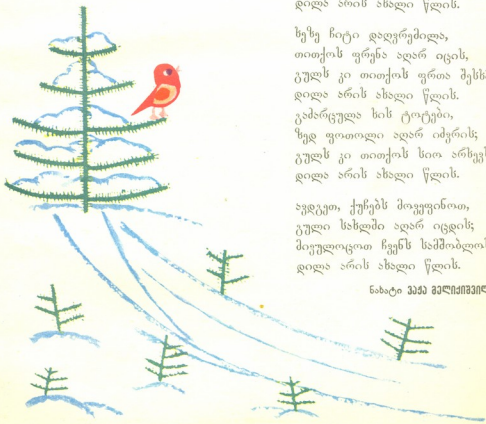 დილა არის ახალი წლის.
ხეზე ჩიტი დაღვრემილა,
თითქოს ფრენა აღარ იცის,
გულს კი თითქოს ფრთა შესხ
დილა არის ახალი წლის.
გაძარცულა ხის ტოტები,
ზედ ფოთოლი აღარ იძვრის;
გულს კი თითქოს სიო არხევ
დილა არის ახალი წლის.
ავდგეთ, ქუჩებს მოვეფინოთ,
გული სახლში აღარ იცდის;
მივულოცოთ ჩვენს სამშობლოს
დილა არის ახალი წლის.
ნახატი ვაჟა მელიქიშვილ